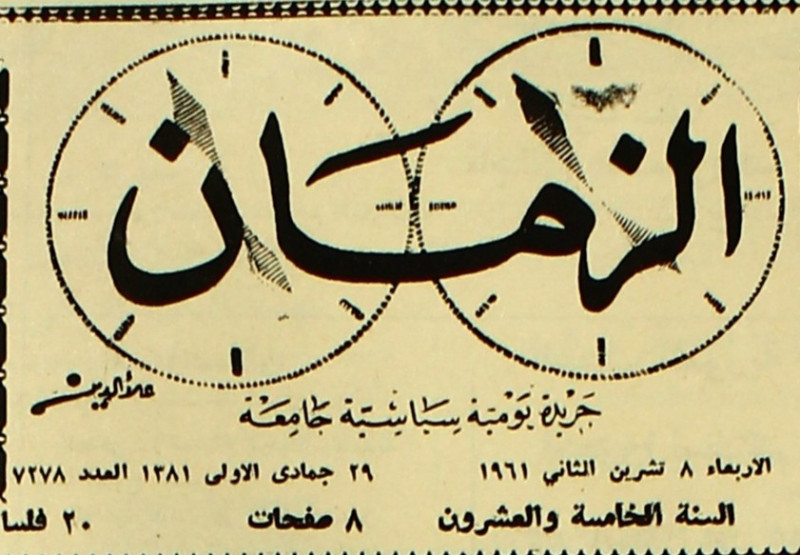 الزمان
علاءالدين
جريدة يومية سياسية جامعة
الاربعاء ٨ تشرين الثاني ١٩٦١ ٢٩ جمادى الاولى ١٣٨١ العدد ٧٢٧٨
السنة الخامسة والعشرون ٨ صفحات ٢٠ فلسا